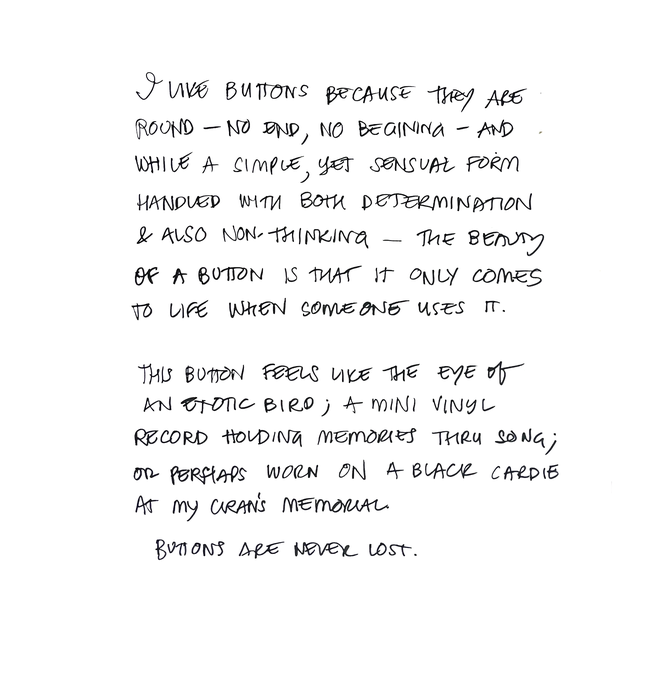 I LIKE BUTTONS BECAUSE THEY ARE
ROUND — NO END, NO BEGINING — AND
WHILE A SIMPLE, YET SENSUAL FORM
HANDLED WITH BOTH DETERMINATION
& ALSO NON-THINKING — THE BEAUTY
OF A BUTTON IS THAT IT ONLY COMES
TO LIFE WHEN SOMEONE USES IT.
THIS BUTTON FEELS LIKE THE EYE OF
AN EXOTIC BIRD; A MINI VINYL
RECORD HOLDING MEMORIES THRU SONG;
OR PERHAPS WORN ON A BLACK CARDIE
AT MY GRAN'S MEMORIAL.
BUTTONS ARE NEVER LOST.